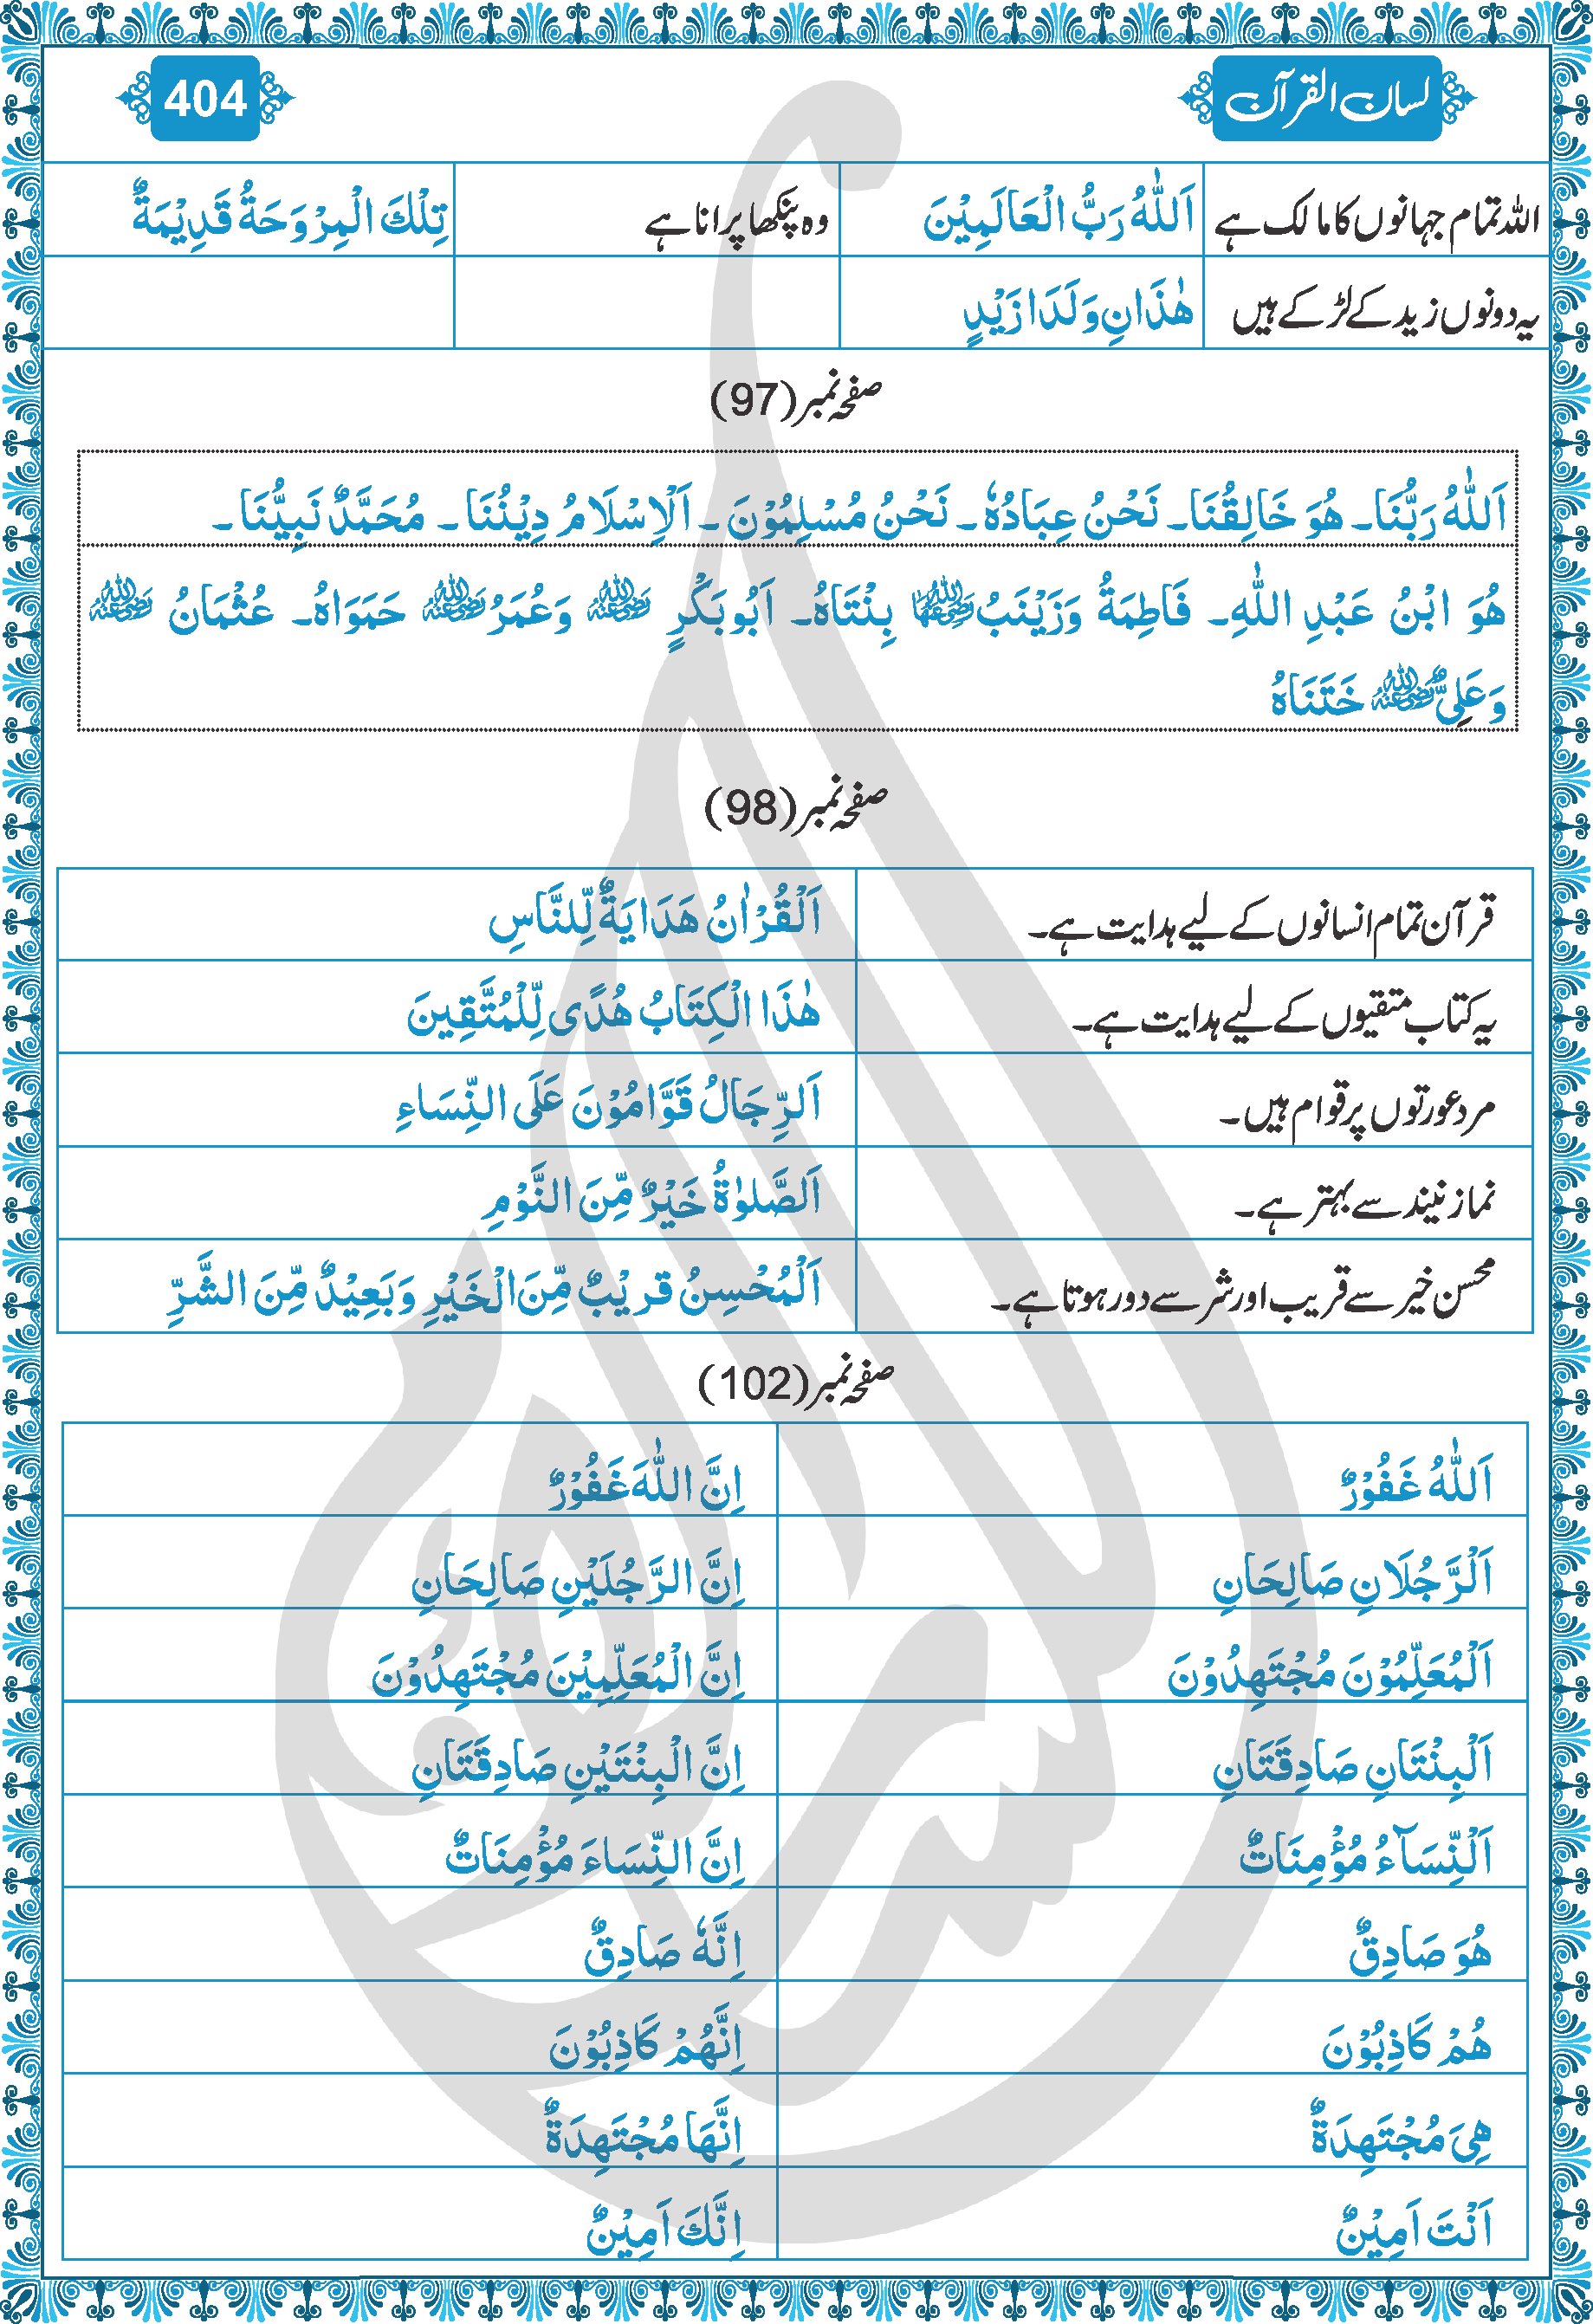 لسان القرآن
404
اللہ تمام جہانوں کا مالک ہے اَللّٰهُ رَبُّ الْعَالَمِيْنَ وہ پنکھا پرانا ہے تِلْكَ الْمِرْوَحَةُ قَدِيْمَةٌ
یہ دونوں زید کے لڑکے ہیں هٰذَانِ وَلَدَا زَيْدٍ
صفحہ نمبر (97)
اَللّٰهُ رَبُّنَا۔ هُوَ خَالِقُنَا۔ نَحْنُ عِبَادُهٗ۔ نَحْنُ مُسْلِمُوْنَ۔ اَلْاِسْلَامُ دِيْنُنَا۔ مُحَمَّدٌ نَبِيُّنَا۔
هُوَ ابْنُ عَبْدِ اللّٰهِ۔ فَاطِمَةُ وَزَيْنَبُ رضی اللہ عنہما بِنْتَاهُ۔ اَبُوبَكْرٍ رضی اللہ عنہ وَعُمَرُ رضی اللہ عنہ حَمَوَاهُ۔ عُثْمَانُ رضی اللہ عنہ
وَعَلِيٌّ رضی اللہ عنہ خَتَنَاهُ
صفحہ نمبر (98)
قرآن تمام انسانوں کے لیے ہدایت ہے۔ اَلْقُرْاٰنُ هَدَايَةٌ لِّلنَّاسِ
یہ کتاب متقیوں کے لیے ہدایت ہے۔ هٰذَا الْكِتَابُ هُدًى لِّلْمُتَّقِينَ
مرد عورتوں پر قوام ہیں۔ اَلرِّجَالُ قَوَّامُوْنَ عَلَى النِّسَاءِ
نماز نیند سے بہتر ہے۔ اَلصَّلوٰةُ خَيْرٌ مِّنَ النَّوْمِ
محسن خیر سے قریب اور شر سے دور ہوتا ہے۔ اَلْمُحْسِنُ قریْبٌ مِّنَ الْخَيْرِ وَبَعِيْدٌ مِّنَ الشَّرِّ
صفحہ نمبر (102)
اَللّٰهُ غَفُوْرٌ اِنَّ اللّٰهَ غَفُوْرٌ
اَلْرَّجُلَانِ صَالِحَانِ اِنَّ الرَّجُلَيْنِ صَالِحَانِ
اَلْمُعَلِّمُوْنَ مُجْتَهِدُوْنَ اِنَّ الْمُعَلِّمِيْنَ مُجْتَهِدُوْنَ
اَلْبِنْتَانِ صَادِقَتَانِ اِنَّ الْبِنْتَيْنِ صَادِقَتَانِ
اَلْنِّسَآءُ مُؤْمِنَاتٌ اِنَّ النِّسَاءَ مُؤْمِنَاتٌ
هُوَ صَادِقٌ اِنَّهٗ صَادِقٌ
هُمْ كَاذِبُوْنَ اِنَّهُمْ كَاذِبُوْنَ
هِيَ مُجْتَهِدَةٌ اِنَّهَا مُجْتَهِدَةٌ
اَنْتَ اَمِيْنٌ اِنَّكَ اَمِيْنٌ